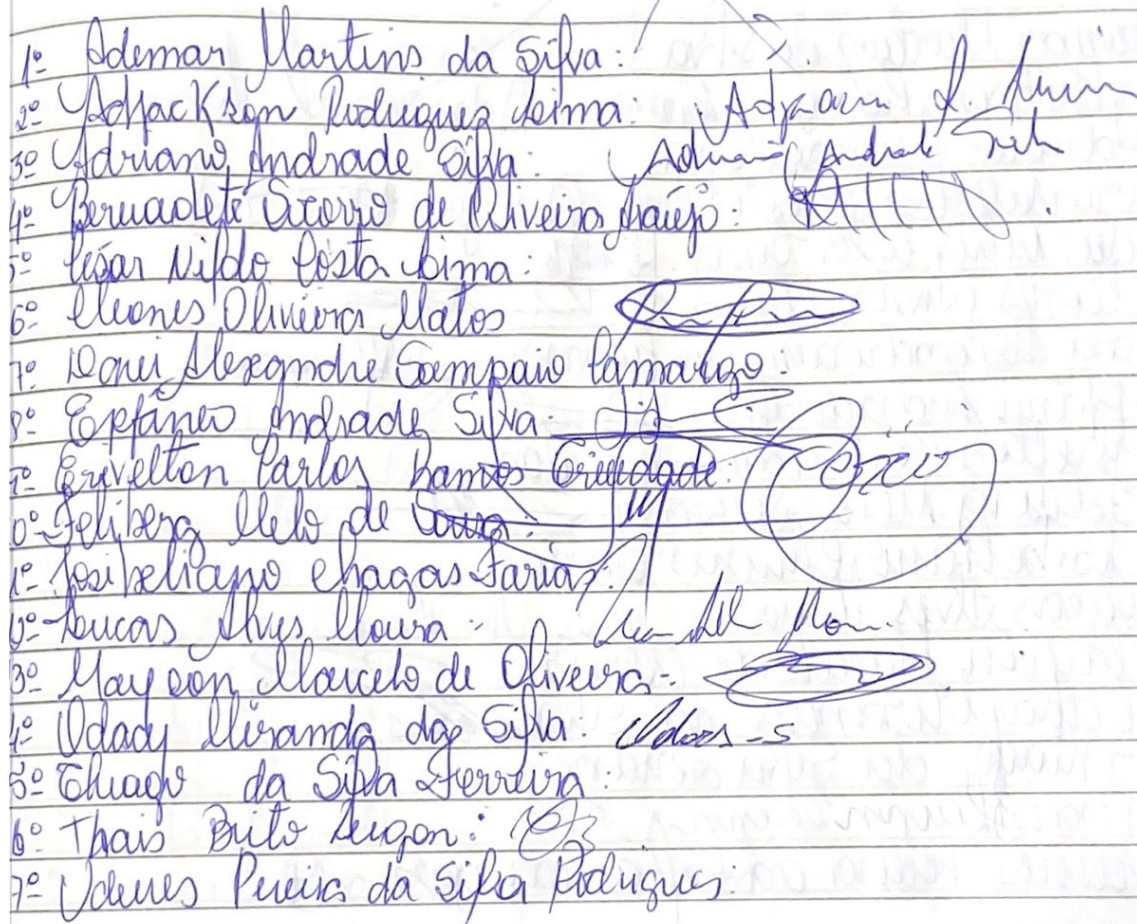 1º Ademar Martins da Silva:
2º Adjackson Rodrigues Leima:
3º Adriano Andrade Silva: Adriano Andrade Silva
4º Bernadete Osorio de Oliveira Araújo:
5º César Nildo Costa Lima:
6º Cleones Oliveira Matos
7º Doni Alexandre Sampaio Camargo:
8º Epfâneo Andrade Silva:
9º Erivelton Carlos Ramos Trindade:
0º Feliberg Melo de Souza:
1º Josibeliano Chagas Farias:
2º Lucas Alves Moura -
3º Maycon Marcelo de Oliveira -
4º Odacy Miranda da Silva:
5º Thiago da Silva Ferreira:
6º Thais Brito Lugon:
7º Valdenes Pereira da Silva Rodrigues.